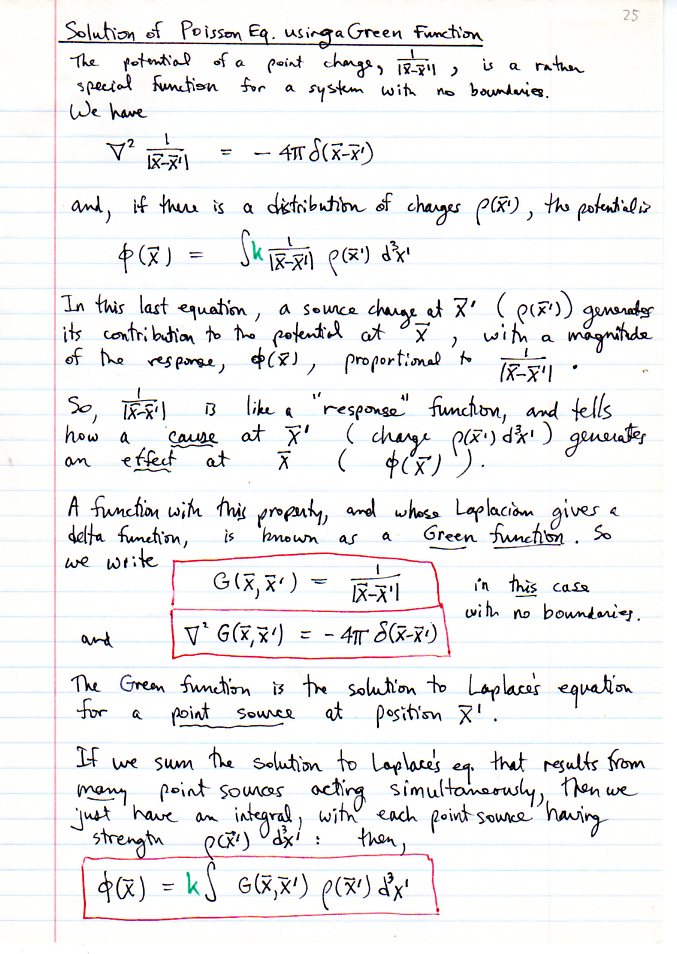 25
Solution of Poisson Eq. using a Green Function
The potential of a point charge, 1/|x̄-x̄'| , is a rather
special function for a system with no boundaries.
We have
∇² 1/|x̄-x̄'| = - 4π δ(x̄-x̄')
and, if there is a distribution of charges ρ(x̄'), the potential is
φ(x̄) = ∫k 1/|x̄-x̄'| ρ(x̄') d³x'
In this last equation, a source charge at x̄' ( ρ(x̄')) generates
its contribution to the potential at x̄ , with a magnitude
of the response, φ(x̄), proportional to 1/|x̄-x̄'| .
So, 1/|x̄-x̄'| is like a "response" function, and tells
how a cause at x̄' ( charge ρ(x̄') d³x' ) generates
an effect at x̄ ( φ(x̄) ).
A function with this property, and whose Laplacian gives a
delta function, is known as a Green function. So
we write
G(x̄,x̄') = 1/|x̄-x̄'| in this case
with no boundaries.
and ∇² G(x̄,x̄') = - 4π δ(x̄-x̄')
The Green function is the solution to Laplace's equation
for a point source at position x̄'.
If we sum the solution to Laplace's eq. that results from
many point sources acting simultaneously, then we
just have an integral, with each point source having
strength ρ(x̄') d³x' : then,
φ(x̄) = k∫ G(x̄,x̄') ρ(x̄') d³x'